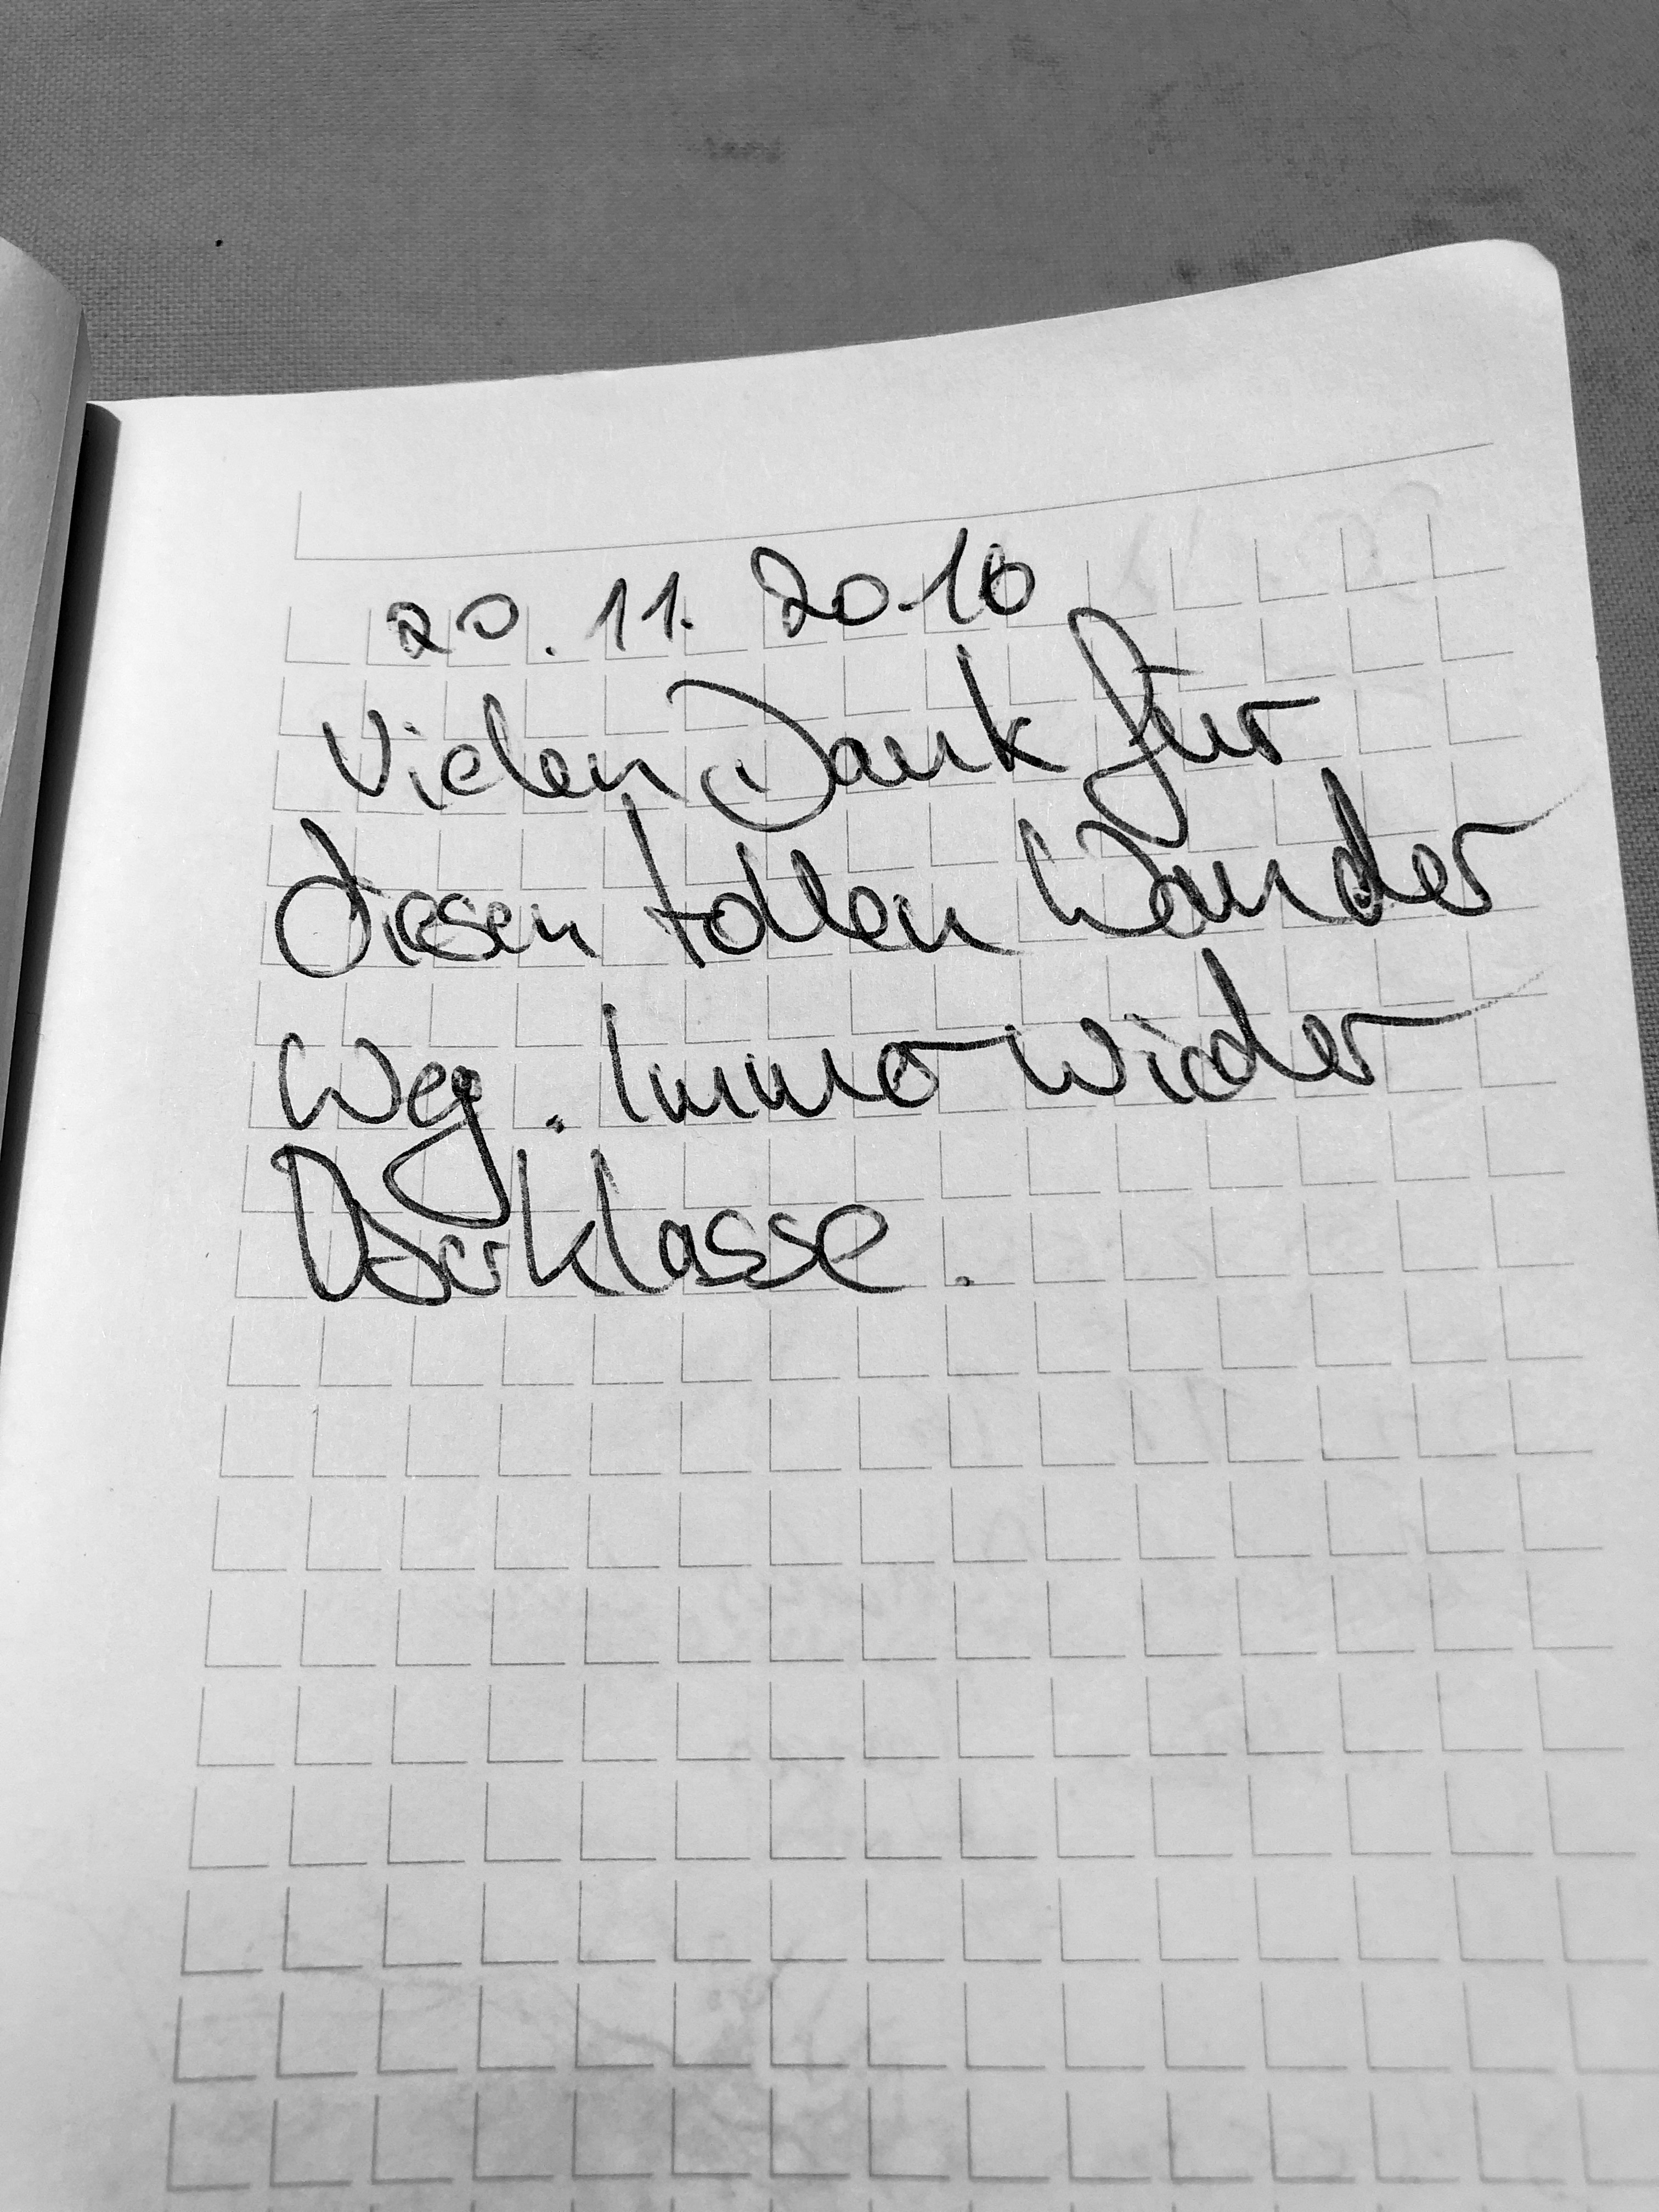 20.11.2010
Vielen Dank für
diesen tollen Wander
Weg. Immer wieder
Oberklasse.